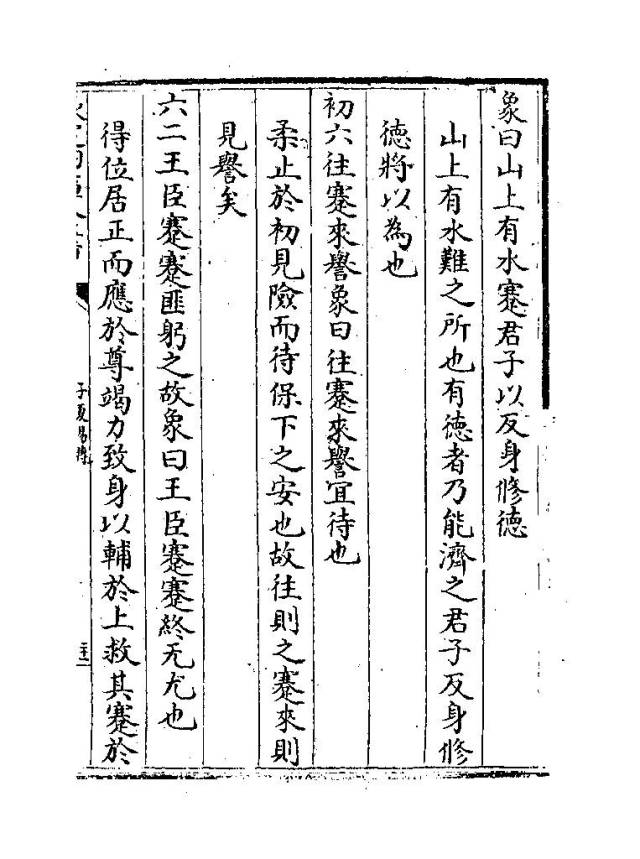 象曰山上有水蹇君子以反身修德
山上有水難之所也有德者乃能濟之君子反身修
德將以為也
初六往蹇來譽象曰往蹇來譽宜待也
柔止於初見險而待保下之安也故往則之蹇來則
見譽矣
六二王臣蹇蹇匪躬之故象曰王臣蹇蹇終无尤也
得位居正而應於尊竭力致身以輔於上救其蹇於
子夏易傳